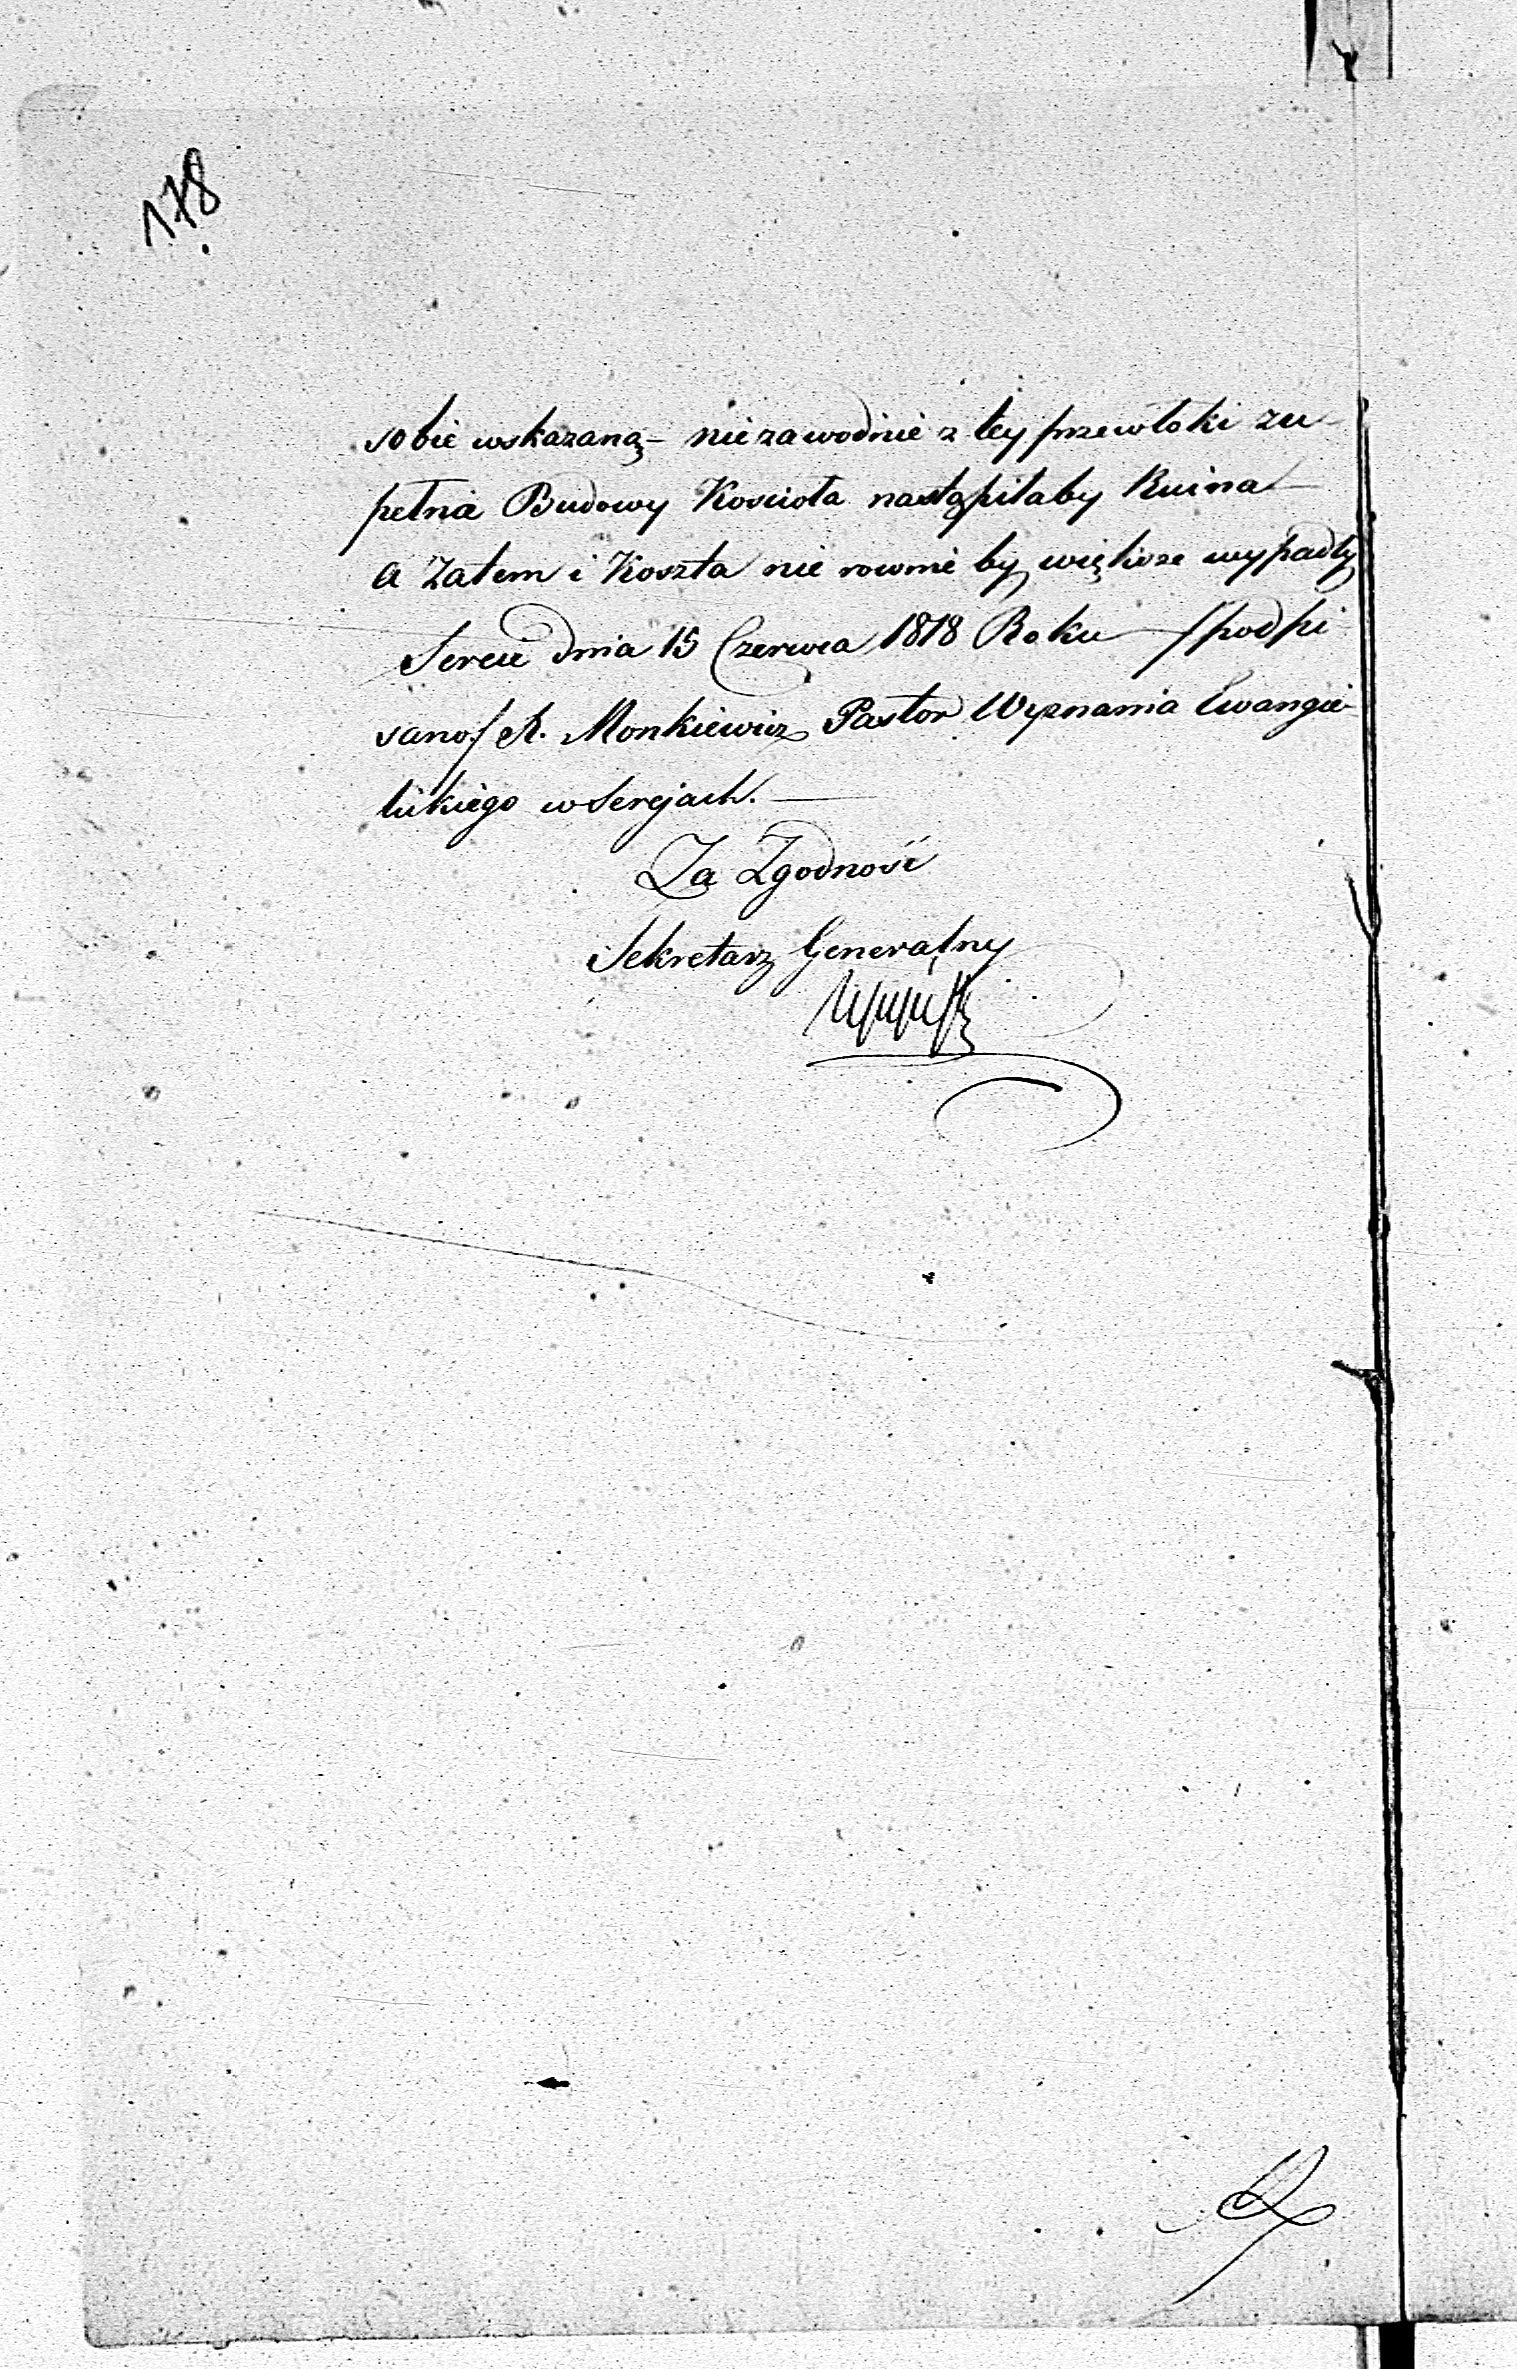 178
sobie wskazaną – niezawodnie z tey przewłoki zu
pełna Budowy Kościoła nastąpiłaby Ruina
a zatem i Koszta nie rownie by większe wypadły
Sereie dnia 15 Czerwca 1818 Roku /podpi
sano/ R. Monkiewicz Pastor Wyznania Ewangie
lickiego w Serejach. —
Za Zgodność
Sekretarz Generalny